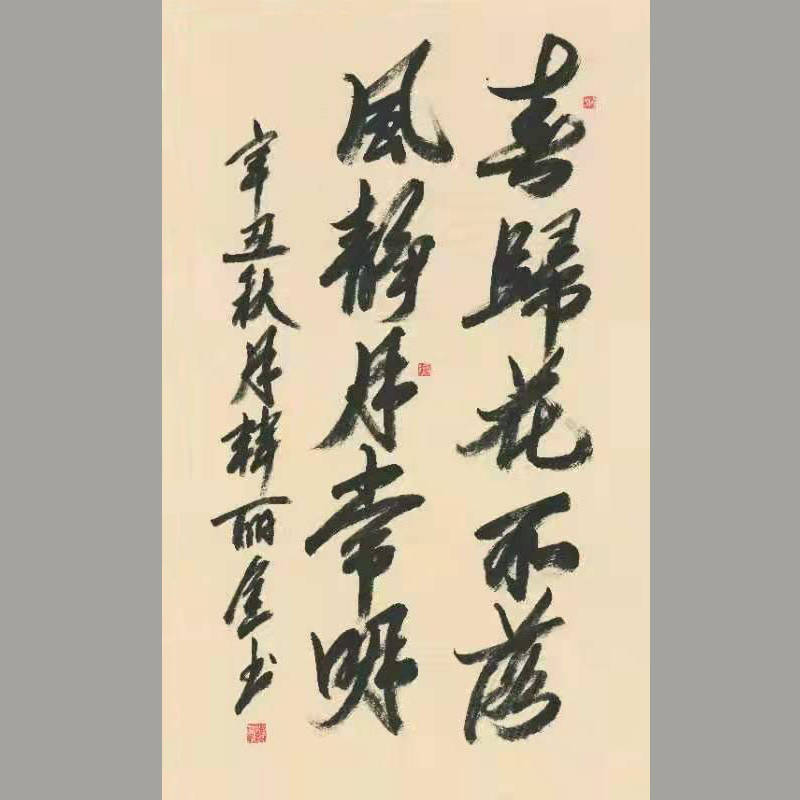 春歸花不落
風靜月常明
辛丑秋月韓丽金书